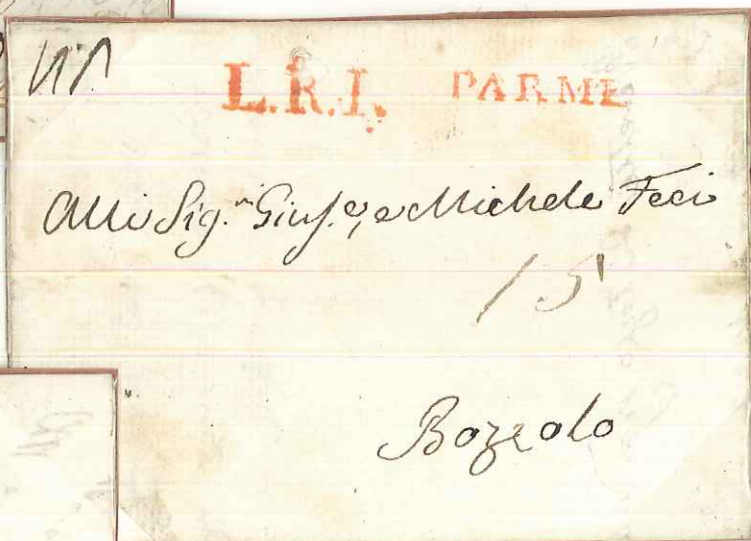 L.R.I. PARME
Alli Sig.ri Gius.e, e Michele Feci
15
Bozzolo